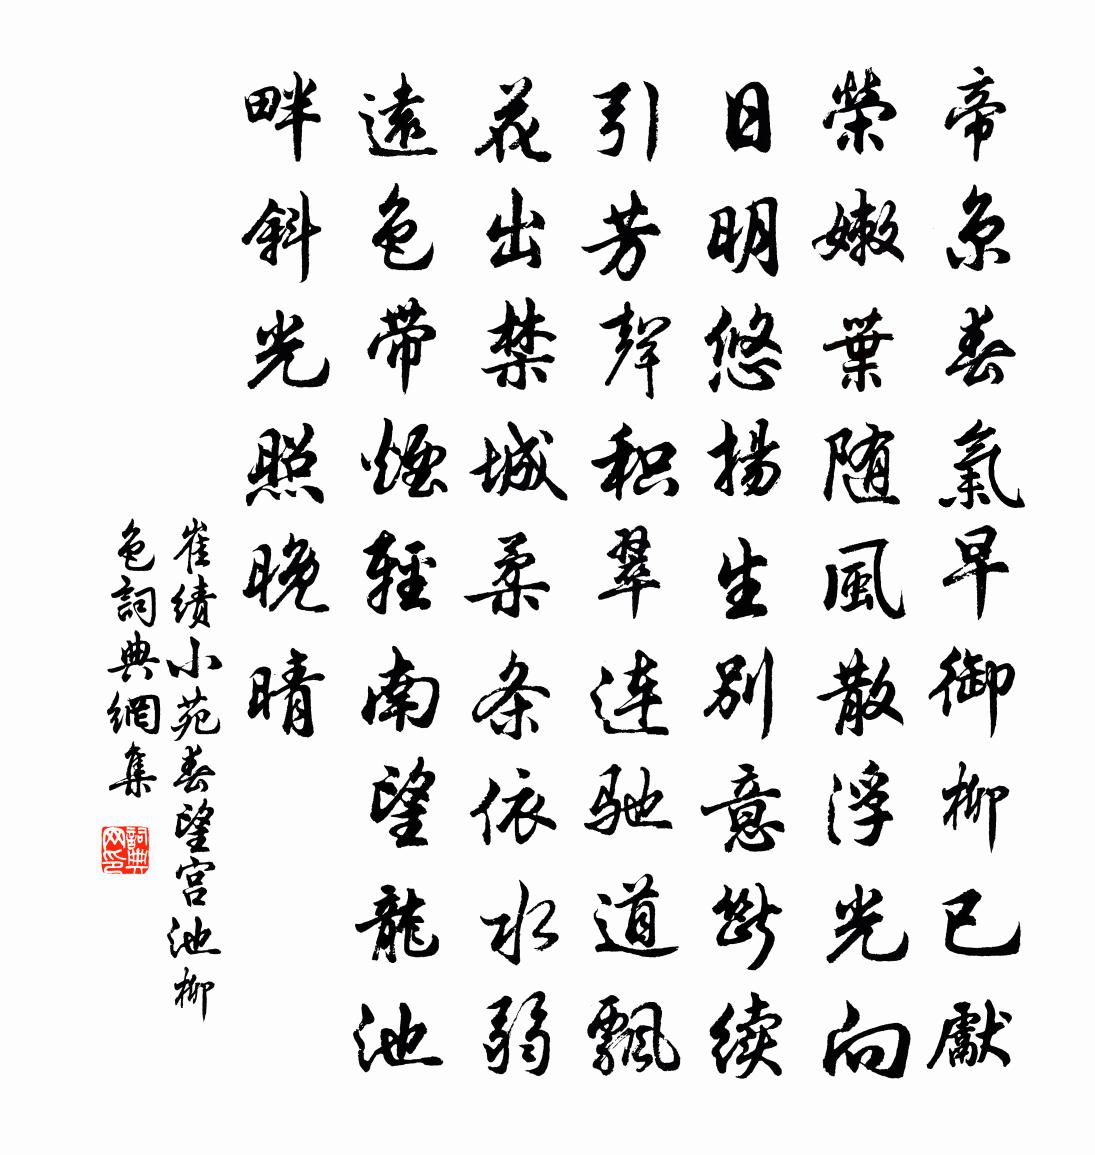 帝京春氣早御柳已獻
榮嫩葉随風散浮光向
日明悠揚生別意斷续
引芳聲积翠连驰道飄
花出禁城柔条依水弱
遠色帶煙輕南望龍池
畔斜光照晚晴
崔績小苑春望宫池柳
色詞典網集
詞典网印